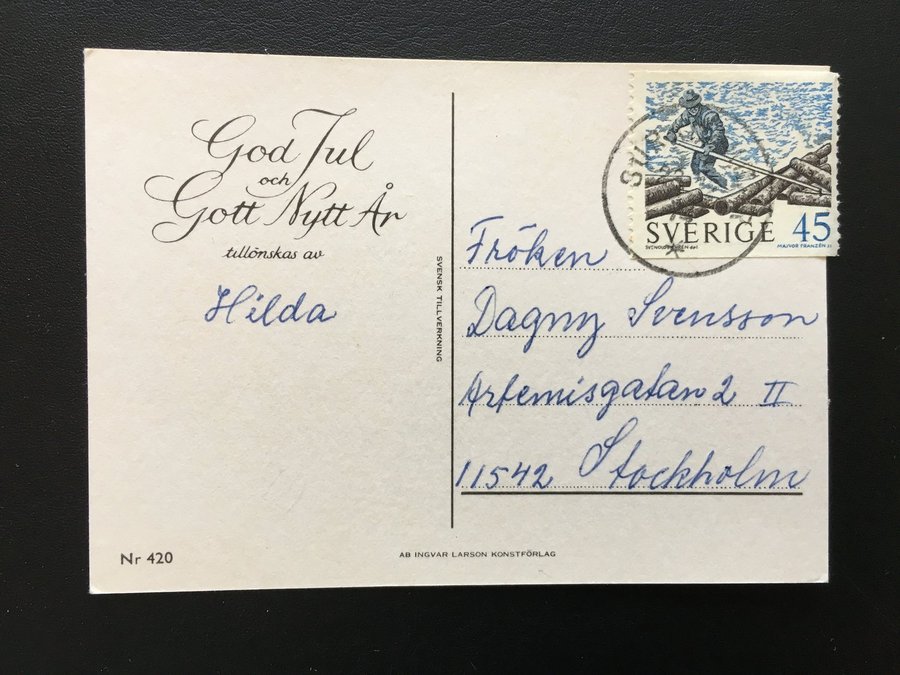 God Jul
och
Gott Nytt År
tillönskas av
Hilda
Nr 420
SVENSK TILLVERKNING
AB INGVAR LARSON KONSTFÖRLAG
SVERIGE 45
MAJVOR FRANZÉN sc
Fröken
Dagny Svensson
Artemisgatan 2 II
11542 Stockholm